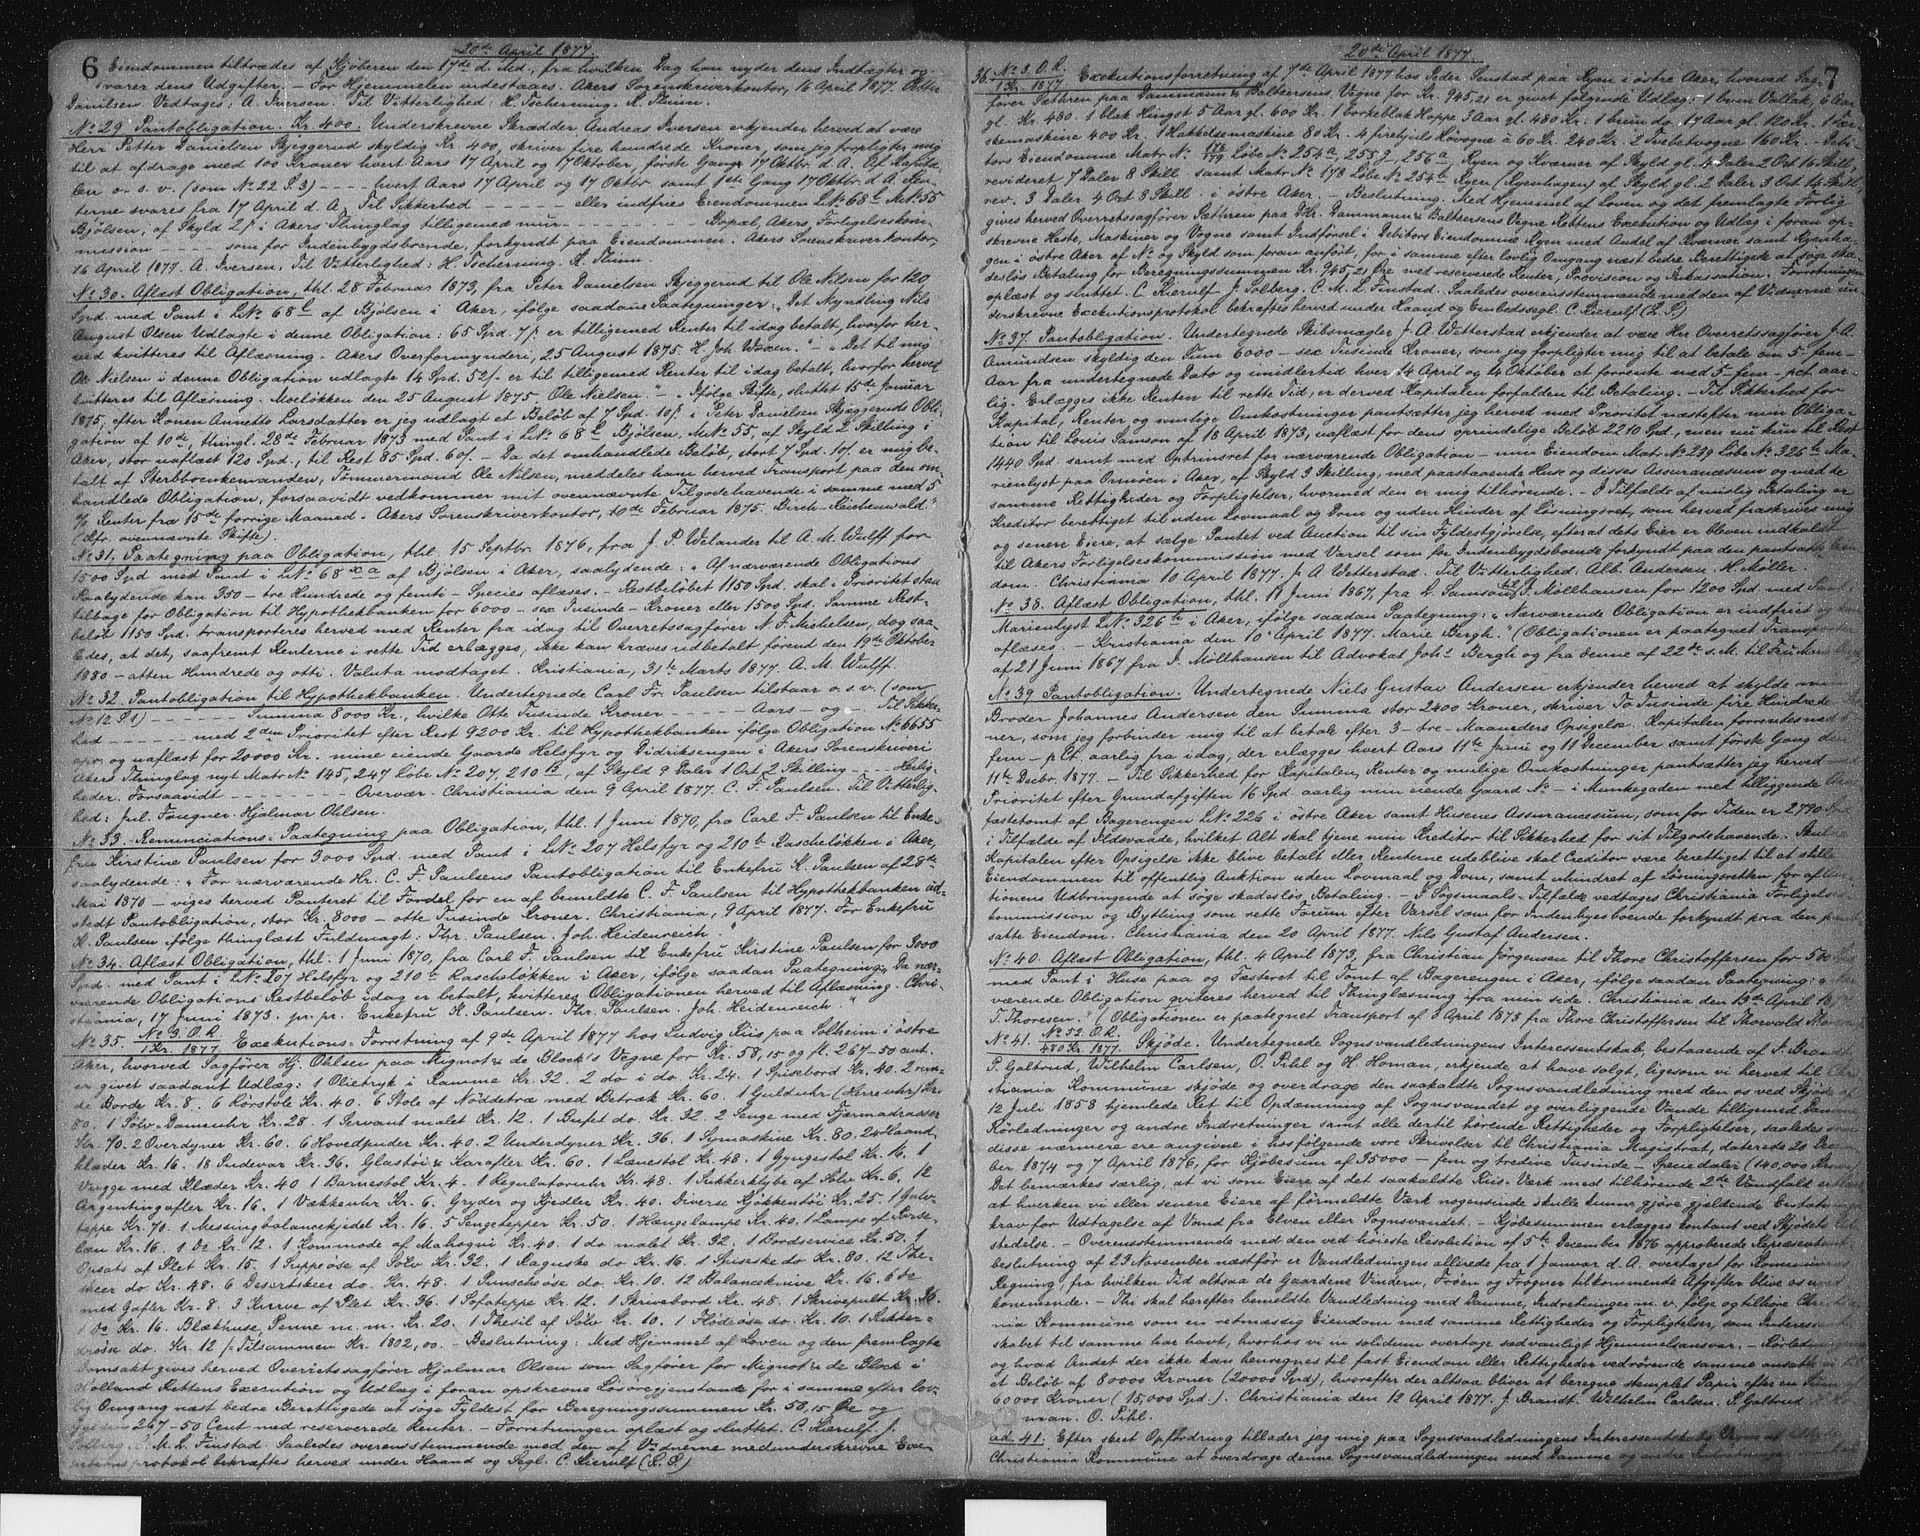 6
20de April 1877.
Eiendommen tiltrædes af Kjøberen den 17de d. Md., fra hvilken Dag han nyder dens Indtægter og
svarer dens Udgifter. – For Hjemmelen indestaaes. Akers Sorenskriverkontor, 16 April 1877. Petter
Danielsen Vedtages: A. Iversen. Til Vitterlighed: H. Tscherning. K. Thinn.
No 29 Pantobligation. Kr. 400. Underskrevne Skrædder Andreas Iversen erkjender herved at være
Herr Petter Danielsen Skjeggerud skyldig Kr 400, skriver fire hundrede Kroner, som jeg forpligter mig
til at afdrage med 100 Kroner hvert Aars 17 April og 17 Oktober, første Gang 17 Oktbr. d. A. Af Kapita-
len o. s. v. (som No 22 S. 3) – – – – hvert Aars 17 April og 17 Oktbr. samt 1ste Gang 17 Oktbr. d. A. Ren-
terne svares fra 17 April d. A. Til Sikkerhed – – – – – eller indfries Eiendommen L№ 68 M№ 55
Bjølsen, af Skyld 2/ i Akers Thinglag tilligemed mur – – – – – Bopæl, Akers Forligelseskom-
mission – – – – som for Indenbygdsboende, forkyndt paa Eiendommen. Akers Sorenskriverkontor,
16 April 1877. A. Iversen. Til Vitterlighed: H. Tscherning. K. Thinn.
No 30. Aflæst Obligation, thl. 28 Februar 1873, fra Peter Danielsen Skjeggerud til Ole Nilsen for 120
Spd med Pant i L№ 68 l af Bjølsen i Aker, ifølge saadanne Paategninger: „Det Myndling Nils
August Olsen Udlagte i denne Obligation: 65 Spd. 7/ er tilligemed Renter til idag betalt, hvorfor her-
ved kvitteres til Aflæsning. Akers Overformynderi, 25 August 1875. H. Joh. Waxen.“ – „Det til mig
Ole Nielsen i denne Obligation udlagte 14 Spd. 52/ er til tilligemed Renter til idag betalt, hvorfor herved
kvitteres til Aflæsning. Moeløkken den 25 August 1875. Ole Nielsen.“ – „Ifølge Skifte, sluttet 15de Januar
1875, efter Konen Annette Larsdatter er jeg udlagt et Beløb af 7 Spd. 10/ i Peter Danielsen Skjeggeruds Obli-
gation af 10de, thingl. 28de Februar 1873 med Pant i L№ 68 l Bjølsen, M№ 55, af Skyld 2 Skilling i
Aker, stor uaflæst 120 Spd., til Rest 85 Spd. 60/. – Da det omhandlede Beløb, stort 7 Spd. 10/. er mig be-
talt af Sterbboenkemanden, Tømmermand Ole Nilsen, meddeles ham herved Transport paa den om-
handlede Obligation, forsaavidt vedkommer mit ovennævnte Tilgodehavende i samme med 5
% Renter fra 15de forrige Maaned. Akers Sorenskriverkontor, 10de Februar 1875. Birch-Reichenwald“
(Cfr. ovennævnte Skifte).
No 31. Paategning paa Obligation, thl. 15 Septbr. 1876, fra J. P. Welander til A. M. Wulff for
1500 Spd med Pant i L№ 68 x a af Bjølsen i Aker, saalydende: „Af nærværende Obligations
Paalydende kan 350 – tre Hundrede og femti – Species aflæses. – Restbeløbet 1150 Spd. skal i Prioritet staa
tilbage for Obligation til Hypothekbanken for 6000 – sex Tusinde – Kroner eller 1500 Spd. Samme Rest-
beløb 1150 Spd. transporteres herved med Renter fra idag til Overretssagfører N. F. Michelsen, dog saa-
ledes, at det, saafremt Renterne i rette Tid erlægges, ikke kan kræves indbetalt forend den 19de Oktober
1880 – atten Hundrede og otti. Valuta modtaget. Kristiania, 31te Marts 1877. A. M. Wulff
No 32. Pantobligation til Hypothekbanken. Undertegnede Carl Fr. Paulsen tilstaar o. s. v. (som
No 12 S. 1) – – – – – Summa 8000 Kr., hvilke Otte Tusinde Kroner – – – – Aars – og – Til Sikker-
hed – – – – – med 2den Prioritet efter Rest 9200 Kr. til Hypothekbanken ifølge Obligation No 6655
opr. og uaflæst for 20000 Kr. mine eiende Gaarde Helsfyr og Didriksengen i Akers Sorenskriveri
Akers Thinglag nyt Matr No 145, 247 Løbe No 207, 210 B, af Skyld 9 Daler 1 Ort 2 Skilling – – – Herlig-
heder. Forsaavidt – – – – – Overvær. Christiania den 9 April 1877. C. F. Paulsen. Til Vitterlig-
hed: Jul. Fougner. Hjalmar Ohlsen.
No 33. Renunciations-Paategning paa Obligation, thl. 1 Juni 1870, fra Carl F. Paulsen til Enke-
fru Kirstine Paulsen for 3000 Spd. med Pant i L№ 207 Helsfyr og 210 b Rascheløkken i Aker,
saalydende: „For nærværende Hr. C. F. Paulsens Pantobligation til Enkefru K. Paulsen af 28de
Mai 1870 – viges herved Panteret til Fordel for en af bemeldte C. F. Paulsen til Hypothekbanken ud-
stedt Pantobligation, stor Kr. 8000 – otte Tusinde Kroner. Christiania, 9 April 1877. For Enkefru
K. Paulsen ifølge thinglæst Fuldmagt: Thr. Paulsen. Joh. Heidenreich.“
No 34. Aflæst Obligation, thl. 1 Juni 1870, fra Carl F. Paulsen til Enkefru Kirstine Paulsen for 3000
Spd. med Pant i L№ 207 Helsfyr og 210 b Rascheløkken i Aker, ifølge saadan Paategning: „Da nær-
værende Obligations Restbeløb idag er betalt, kvitteres Obligationen herved til Aflæsning. Chri-
stiania, 17 Juni 1873. pr. pr. Enkefru K. Paulsen. Thr. Paulsen. Joh. Heidenreich.“
No 35. No 9. O. R. 1 Kr. 1877. Exekutions-Forretning af 9de April 1877 hos Ludvig Riis paa Solheim i østre
Aker, hvorved Sagfører Hj. Ohlsen paa Mignot & de Block's Vegne for Kr. 58,15 og fl. 267–50 cent.
er givet saadant Udlæg: 1 Olietryk i Ramme Kr. 32. 2 do i do Kr. 24. 1 Spisebord Kr. 40. 2 run-
de Borde Kr. 8. 6 Rørstole Kr. 40. 6 Stole af Nøddetræ med Betræk Kr. 60. 1 Guldur (Herreuhr) Kr.
80. 1 Sølv-Dameuhr Kr. 28. 1 Servant malet Kr. 12. 1 Bufet do Kr. 32. 2 Senge med Fjærmadrasser
Kr. 70. 2 Overdyner Kr. 60. 6 Hovedpuder Kr. 40. 2 Underdyner Kr. 36. 1 Symaskine Kr. 80. 24 Haand-
klæder Kr. 16. 18 Pudevar Kr. 36. Glastøi & Karafler Kr. 60. 1 Lænestol Kr. 48. 1 Gyngestol Kr. 16. 1
Vugge med Klæder Kr. 40 1 Barnestol Kr. 4. 1 Regulatoruhr Kr. 48. 1 Sukkerklype af Sølv Kr. 6. 12
Argentingafler Kr. 16. 1 Vækkeruhr Kr. 6. Gryder og Kjedler Kr. 40. Diverse Kjøkkentøi Kr. 25. 1 Gulv-
teppe Kr. 70. 1 Messingbalancekjedel Kr. 16. 5 Sengetepper Kr. 50. 1 Hængelampe Kr. 40. 1 Lampe af Porse-
læn Kr. 16. 1 Do Kr. 12. 1 Kommode af Mahogni Kr. 40. 1 do malet Kr. 32. 1 Bordservice Kr. 50. 1
Opsats af Plet Kr. 15. 1 Suppøse af Sølv Kr. 32. 1 Raguske do Kr. 16. 1 Spiseske do Kr. 80. 12 The-
skeer do Kr. 48. 6 Desertskeer do. Kr. 48. 1 Punschøse do Kr. 10. 12 Balanceknive Kr. 16. 6 do
med Gafler Kr. 8. 3 Kurve af Plet Kr. 36. 1 Sofateppe Kr. 12. 1 Skrivebord Kr. 48. 1 Skrivepult Kr.
1 do Kr. 16. Blækhuse, Penne m. m. Kr. 20. 1 Thesil af Sølv Kr. 10. 1 Flødeøse do. Kr. 10. 1 Sukker-
do. Kr. 12 /: Tilsammen Kr. 1802,00. – Beslutning: Med Hjemmel af Loven og den fremlagte
gives herved Overretssagfører Hjalmar Olsen som Sagfører for Mignot & de Block i
Holland Rettens Execution og Udlæg i foran opskrevne Løsøregjenstande for i samme efter lov-
lig Omgang næst bedre Berettigede at søge Fyldest for Beregningssummen Kr. 58,15 Øre og
267–50 Cent med reserverede Renter. – Forretningen oplæst og sluttet. C. Kierulf. J.
Solberg. C. M. L. Finstad. Saaledes overensstemmende med den af Vidnerne medunderskrevne Exe-
kutionsprotokol bekræftes herved under Haand og Segl. C. Kierulf (L. S.)
7
20de April 1877.
36. No 3. O. R. 1 Kr. 1877. Exekutionsforretning af 7de April 1877 hos Peder Sonstad paa Ryen i østre Aker, hvorved Sag-
fører Sæthren paa Dammann & Baltzersens Vegne for Kr. 945,21 er givet følgende Udlæg: 1 brun Vallak, 6 Aar
gl. Kr. 480. 1 blak Hingst 5 Aar gl. 600 Kr. 1 borkeblak Hoppe 3 Aar gl. 480 Kr. 1 brun do. 17 Aar gl. 120 Kr. 1 Tær-
skemaskine 400 Kr. 1 Hakkelsemaskine 80 Kr. 4 firehjuls Høvogne à 60 Kr. 240 Kr. 2 Tvebetvogne 160 Kr. – Debi-
tors Eiendomme Matr No 176/179 Løbe No 254a, 255g, 256a Ryen og Kværner af Skyld gl. 4 Daler 2 Ort 16 Skill,
revideret 7 Daler 8 Skill samt Matr No 178 Løbe No 254b Ryen (Ryenhagen) af Skyld gl. 2 Daler 3 Ort 14 Skill
rev. 3 Daler 4 Ort 8 Skill. i østre Aker. – Beslutning. Med Hjemmel af Loven og det fremlagte Forlig
gives herved Overretssagfører Sæthren paa DHr. Dammann & Baltzersens Vegne Rettens Execution og Udlæg i foran op-
skrevne Heste, Maskiner og Vogne samt Indførsel i Debitors Eiendomme Ryen med Andel af Kværner samt Ryenha-
gen i østre Aker af No og Skyld som foran anført, for i samme efter lovlig Omgang næst bedre Berettigede at søge ska-
desløs Betaling for Beregningssummen Kr. 945,21 Øre med reserverede Renter, Provision og Inkassation. – Forretningen
oplæst og sluttet. C. Kierulf. J. Solberg. C. M. L. Finstad. Saaledes overensstemmende med den af Vidnerne un-
derskrevne Exekutionsprotokol bekræftes herved under Haand og Embedssegl. C. Kierulf (L. S.)
No 37. Pantobligation. Undertegnede Skibsmægler J. A. Wetterstad erkjender at være Hr. Overretssagfører J. A.
Amundsen skyldig den Sum 6000 – sex Tusinde Kroner, som jeg forpligter mig til at betale om 5 – fem –
Aar fra undertegnede Dato og imidlertid hver 14 April og 14 Oktober at forrente med 5 – fem – pct. aar-
lig. Erlægges ikke Renten til rette Tid, er derved Kapitalen forfalden til Betaling. – Til Sikkerhed for
Kapital, Renter og mulige Omkostninger pantsætter jeg herved med Prioritet næstefter min Obliga-
tion til Louis Samson af 18 April 1873, uaflæst for dens oprindelige Beløb 2210 Spd., men nu kun til Rest
1440 Spd samt med Optrinsret for nærværende Obligation – min Eiendom Mat No 239 Løbe No 326 b Ma-
rienlyst paa Ormøen i Aker, af Skyld 3 Skilling, med paastaaende Huse og disses Assurancesum og med de
samme Rettigheder og Forpligtelser, hvormed den er mig tilhørende. – I Tilfælde af mislig Betaling er
Kreditor berettiget til uden Lovmaal og Dom og uden Hinder af Løsningsret, som herved fraskrives mig
og senere Eiere, at sælge Pantet ved Auction til sin Fyldestgjørelse, efterat dets Eier er bleven indkaldt
til Akers Forligelseskommission med Varsel som for Indenbygdsboende forkyndt paa den pantsatte Eien-
dom. Christiania 10 April 1877. J. A. Wetterstad. Til Vitterlighed: Alb. Andersen. H. Møller.
No 38. Aflæst Obligation, thl. 11 Juni 1867, fra L. Samson til J. Møllhausen for 1200 Spd med Pant i
Marienlyst L№ 326 b i Aker, ifølge saadan Paategning: „Nærværende Obligation er indfriet og kan
aflæses. – Kristiania den 10 April 1877. Marie Bergh.“ (Obligationen er paategnet Transport
af 21 Juni 1867 fra J. Møllhausen til Advokat Joh. Bergh og fra denne af 22de s. M. til Fru Marie
No 39 Pantobligation. Undertegnede Niels Gustav Andersen erkjender herved at skylde min
Broder Johannes Andersen den Summa stor 2400 Kroner, skriver To Tusinde fire Hundrede Kro-
ner, som jeg forbinder mig til at betale efter 3 – tre – Maaneders Opsigelse. Kapitalen forrentes med 5
fem – pCt. aarlig fra idag, der erlægges hvert Aars 11te Juni og 11 December samt første Gang den
11te Decbr. 1877. – Til Sikkerhed for Kapitalen, Renter og mulige Omkostninger, pantsætter jeg herved med
Prioritet efter Grundafgiften 16 Spd. aarlig min eiende Gaard No – i Munkegaden med tilliggende
fæstetomt af Bagerengen L№ 226 i østre Aker samt Husenes Assurancesum, som for Tiden er 2770 Spd
i Tilfælde af Ildsvaade, hvilket Alt skal tjene min Kreditor til Sikkerhed for sit Tilgodehavende. – Skulde
Kapitalen efter Opsigelse ikke blive betalt eller Renterne udeblive skal Creditor være berettiget til at stille
Eiendommen til offentlig Auktion uden Lovmaal og Dom, samt uhindret af Løsningsretten for af Auk-
tionens Udbringende at søge skadesløs Betaling. – I Søgsmaals-Tilfælde vedtages Christiania Forligelses-
kommission og Bything som rette Forum efter Varsel som for Indenbyesboende forkyndt paa den pant-
satte Eiendom. Christiania den 20 April 1877. Nils Gustaf Andersen.
No 40. Aflæst Obligation, thl. 4 April 1873, fra Christian Jørgensen til Thore Christoffersen for 500 Spd
med Pant i Huse paa og Fæsteret til Tomt af Bagerengen i Aker, ifølge saadan Paategning: „Nær-
værende Obligation qviteres herved til Thinglæsning fra min side. Christiania den 19de April 1877.
T. Thoresen.“ (Obligationen er paategnet Transport af 3 April 1873 fra Thore Christoffersen til Thorvald Thoresen)
No 41. No 52. O. R. 480 Kr. 1877. Skjøde. Undertegnede Sognsvandledningens Interessentskab, bestaaende af J. Brandt
P. Galtrud, Wilhelm Carlsen, O. Pihl og H. Homan, erkjende, at have solgt, ligesom vi herved til Chri-
stiania Kommune skjøde og overdrage den saakaldte Sognsvandledning med den os ved Skjøde af
12 Juli 1858 hjemlede Ret til Opdæmning af Sognsvandet og overliggende Vande tilligemed Damme
Rørledninger og andre Indretninger samt alle dertil hørende Rettigheder og Forpligtelser, saaledes som
disse nærmere ere angivne i hosfølgende vore Skrivelser til Christiania Magistrat, daterede 20 Decem-
ber 1874 og 7 April 1876, for Kjøbesum af 35000 – fem og tredive Tusinde – Speciedaler (140,000 Kroner)
Det bemærkes særlig, at vi som Eiere af det saakaldte Riis Værk med tilhørende 2de Vandfald erklære
at hverken vi eller senere Eiere af formeldte Værk nogensinde skulle kunne gjøre gjældende Erstatnings-
krav for Udtagelse af Vand fra Elven eller Sognsvandet. – Kjøbesummen erlægges kontant ved Skjødets Ud-
stedelse. – Overensstemmende med den ved høieste Resolution af 5te December 1876 approberede Repræsentant-
beslutning af 23 November næstfør er Vandledningen allerede fra 1 Januar d. A. overtaget for Kommunens
Regning, fra hvilken Tid altsaa de Gaardene Vindern, Frøen og Frogner tilkommende Afgifter blive os uved-
kommende. – Thi skal herefter bemeldte Vandledning med Damme, Indretninger m. v. følge og tilhøre Christia-
nia Kommune som en retmæssig Eiendom med samme Rettigheder og Forpligtelser, som Interessent-
skabet til samme har havt, hvorhos vi in solidum overtage sædvanligt Hjemmelsansvar. – Rørledningen
og hvad Andet der ikke kan henregnes til fast Eiendom eller Rettigheder vedrørende samme ansætte vi til
et Beløb af 80000 Kroner (20000 Spd), hvorefter der altsaa bliver at beregne stemplet Papir efter en Sum
60000 Kroner (15,000 Spd). Christiania den 12 April 1877. J. Brandt. Wilhelm Carlsen. P. Galtrud. H. Ho-
man. O. Pihl.
ad 41. Efter skeet Opfordring tillader jeg mig paa Sognsvandledningens Interessentskabs Vegne at
Christiania Kommune at overdrage denne Sognsvandledningen med Damme og andre Indretninger